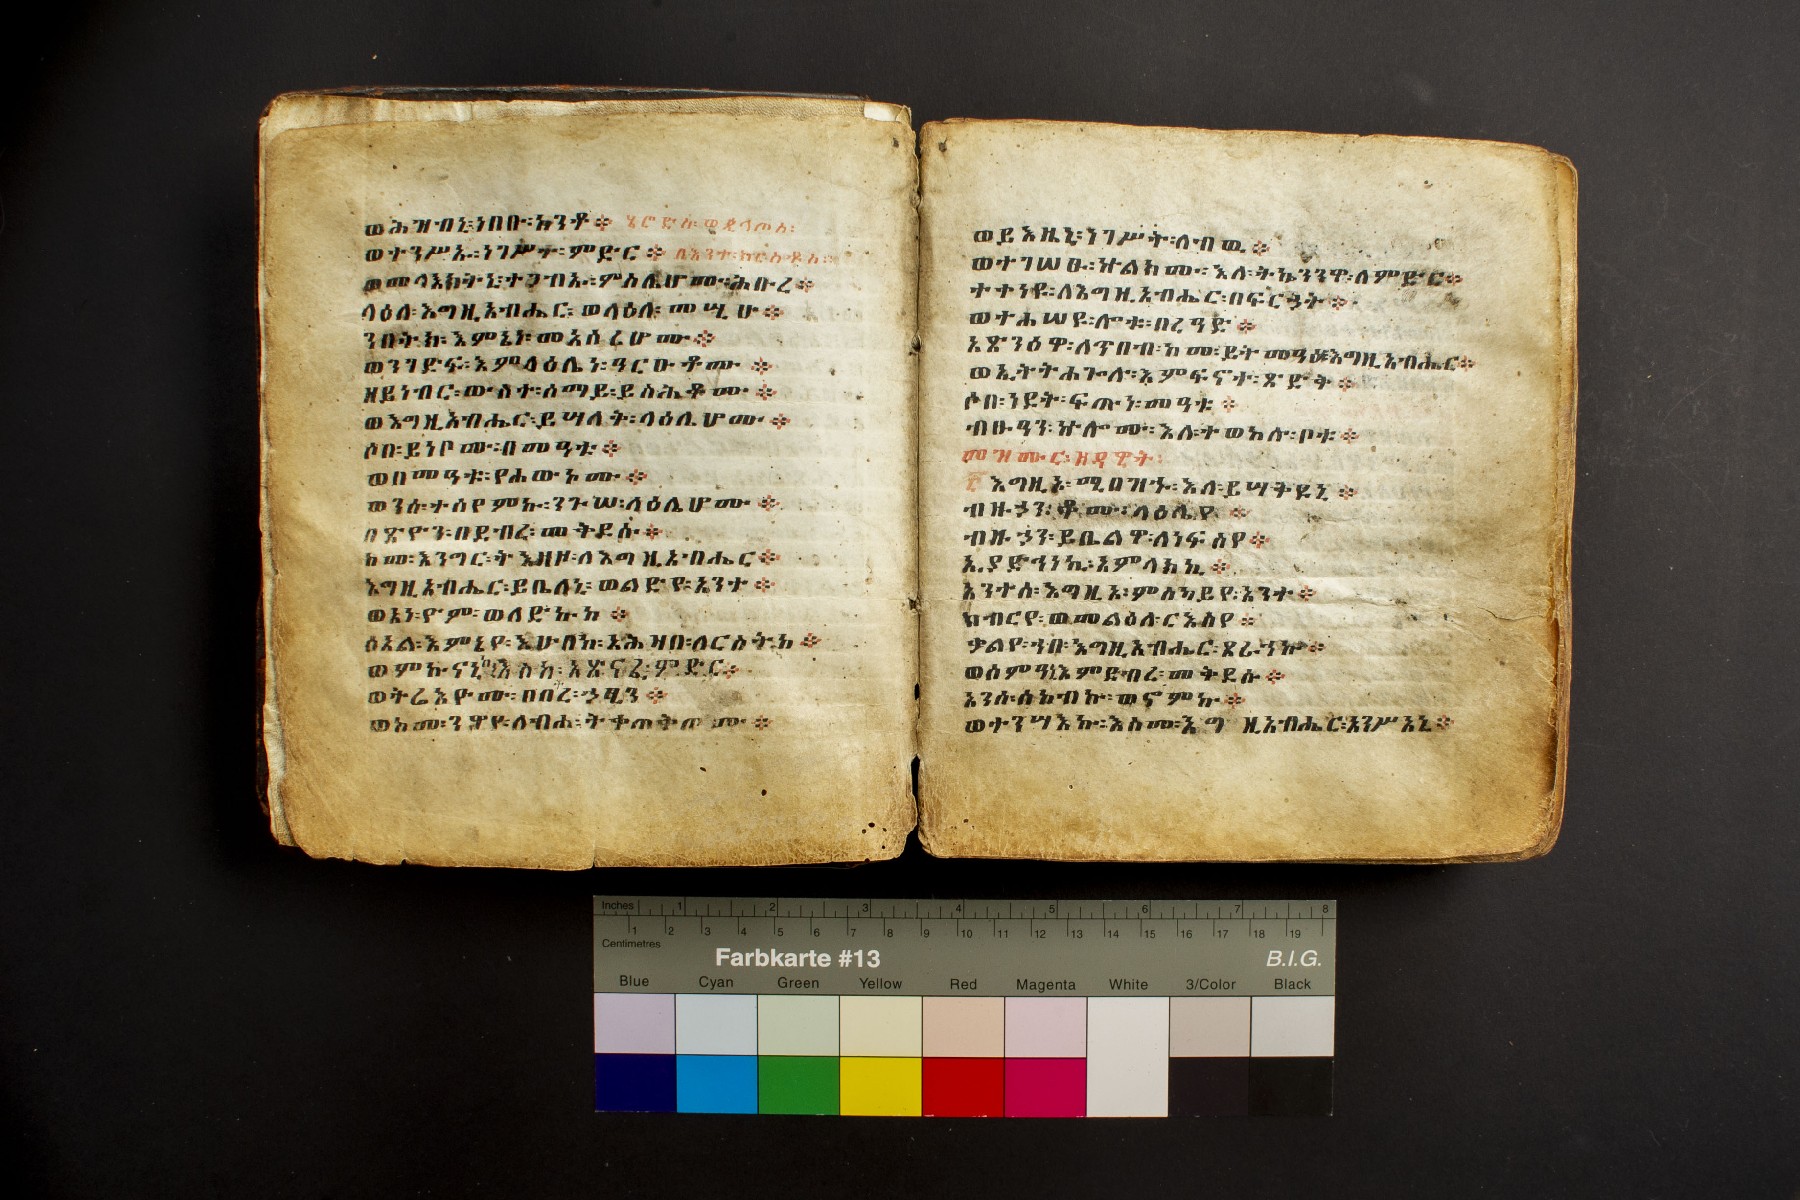 ወሕዝብኒ፡ነበቡ፡ከንቶ፨ ሄሮድስ፡ወጲላጦስ፡
ወተንሥኡ፡ነገሥተ፡ምድር፨ በእንተ፡ክርስቶስ፡
ወመላእክትኒ፡ተጋብኡ፡ምስሌሆሙ፡ሕቡረ፨
ላዕለ፡እግዚአብሔር፡ወላዕለ፡መሢሁ፨
ንበትክ፡እምኔነ፡መኣሰሪሆሙ፨
ወንገድፍ፡እምላዕሌነ፡ዓርዑቶሙ፨
ዘይነብር፡ውስተ፡ሰማይ፡ይስሕቆሙ፨
ወእግዚአብሔር፡ይሣለት፡ላዕሌሆሙ፨
ሶበ፡ይነቦሙ፡በመዓቱ፨
ወበመዓቱ፡የሐውኮሙ፨
ወንሱ፡ተሰየምኩ፡ንጉሠ፡ላዕሌሆሙ፨
በጽዮን፡በደብረ፡መቅደሱ፨
ከመ፡እንግር፡ትእዘዞ፡ለእግዚአብሔር፨
እግዚአብሔር፡ይቤለኒ፡ወልድየ፡አንተ፨
ወአነ፡ዮም፡ወለድኩከ፨
ሰአል፡እምኔየ፡እሁበከ፡አሕዛበ፡ለርስትከ፨
ወምኩናኒከ፡እስከ፡አጽናፈ፡ምድር፨
ወትሬእዮሙ፡በበትረ፡ኃፂን፨
ወከመ፡ንዋየ፡ለብሐ፡ትቀጠቅጦሙ፨
ወይእዜኒ፡ነገሥት፡ለብዉ፨
ወተገሠፁ፡ኵልክሙ፡እለ፡ትኴንንዋ፡ለምድር፨
ተቀነዩ፡ለእግዚአብሔር፡በፍርሃት፨
ወተሐሠዩ፡ሎቱ፡በረዓድ፨
አጽንዕዋ፡ለጥበብ፡ከመ፡ይትመዓዕ፡እግዚአብሔር፨
ወኢትትሐጐሉ፡እምፍኖተ፡ጽድቅ፨
ሶበ፡ነደት፡ፍጡነ፡መዓቱ፨
ብፁዓን፡ኵሎሙ፡እለ፡ተወከሉ፡ቦቱ፨
መዝሙር፡ዘዳዊት፡
፫ እግዚኦ፡ሚበዝኁ፡እለ፡ይሣቅዩኒ፨
ብዙኃን፡ቆሙ፡ላዕሌየ፨
ብዙኃን፡ይቤልዋ፡ለነፍስየ፨
ኢያድኅነኪ፡አምላክኪ፨
አንተሰ፡እግዚኦ፡ምስካይየ፡አንተ፨
ክብርየ፡ወመልዕለ፡ርእስየ፨
ቃልየ፡ኀበ፡እግዚአብሔር፡ጸራኅኩ፨
ወሰምዓኒ፡እምደብረ፡መቅደሱ፨
አንሰ፡ሰከብኩ፡ወኖምኩ፨
ወተንሣእኩ፡እስመ፡እግዚአብሔር፡አንሥአኒ፨
Inches 1 2 3 4 5 6 7 8
1 2 3 4 5 6 7 8 9 10 11 12 13 14 15 16 17 18 19
Centimetres
Farbkarte #13 B.I.G.
Blue Cyan Green Yellow Red Magenta White 3/Color Black